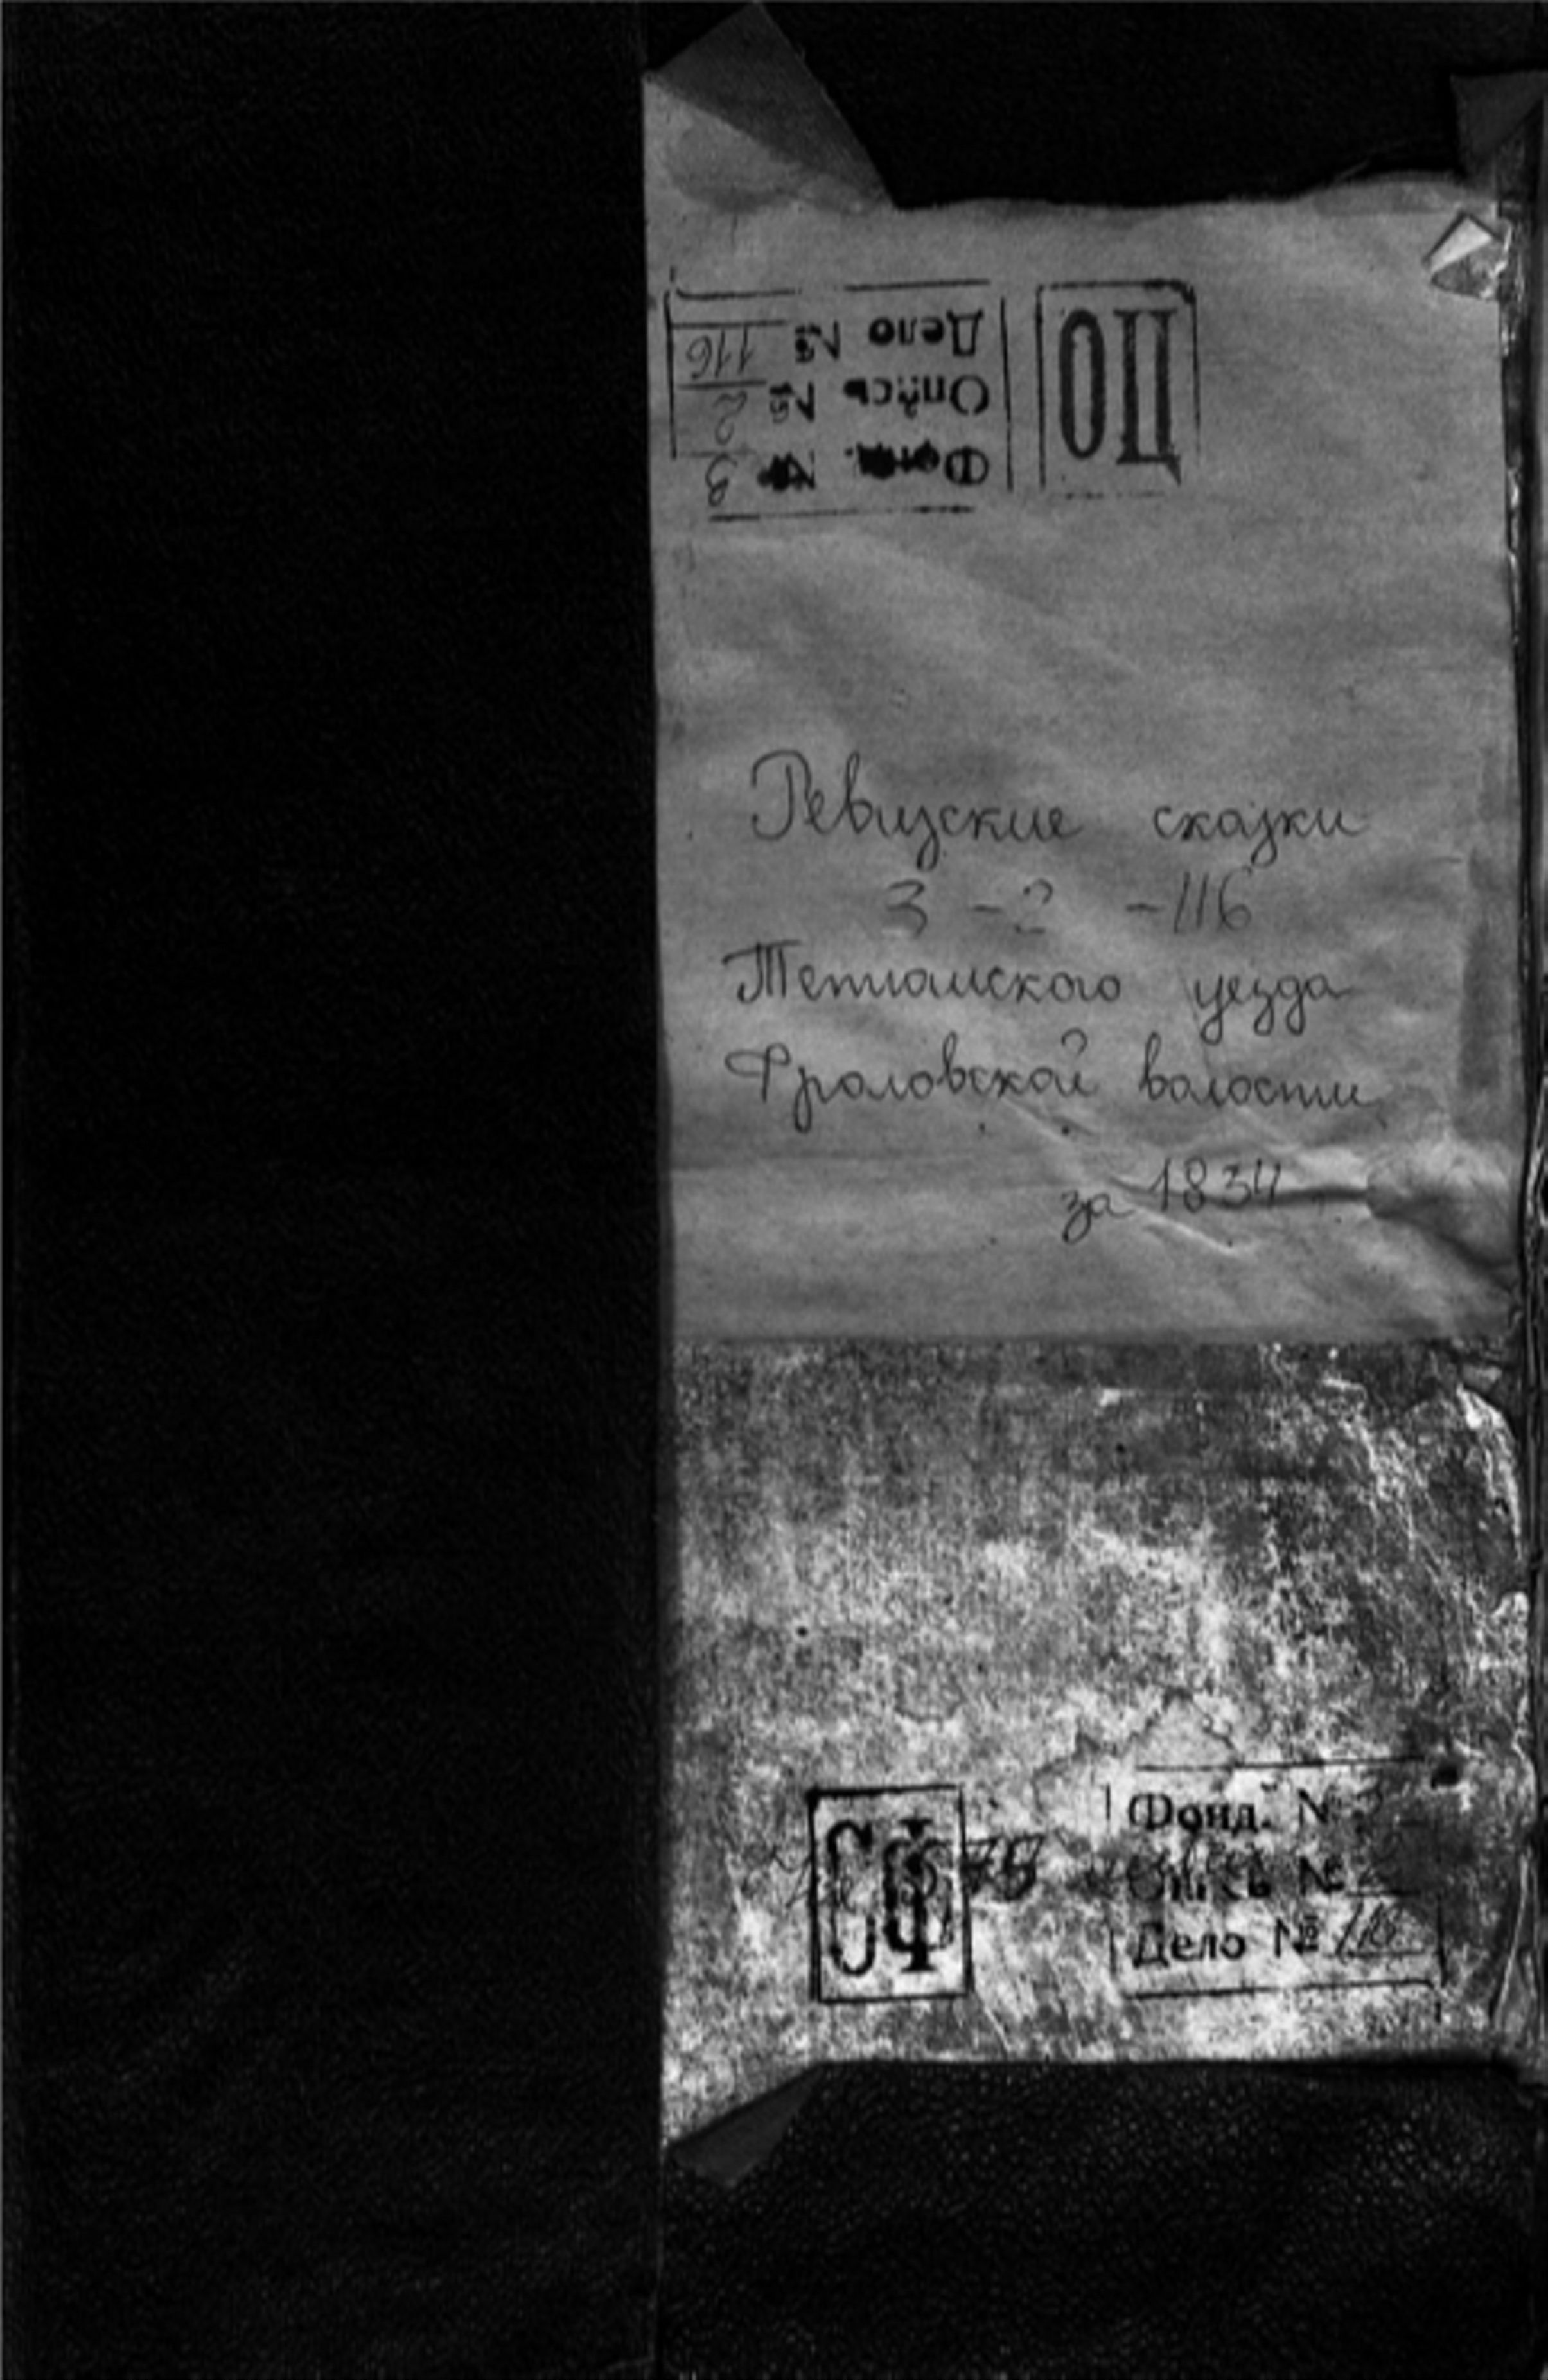 ОЦ
Фонд. № 3
Опись № 2
Дело № 116
Ревизские сказки
3 - 2 - 116
Тетюшского уезда
Фроловской волости
за 1834
СФ
Фонд. №
Опись № 2
Дело № 116